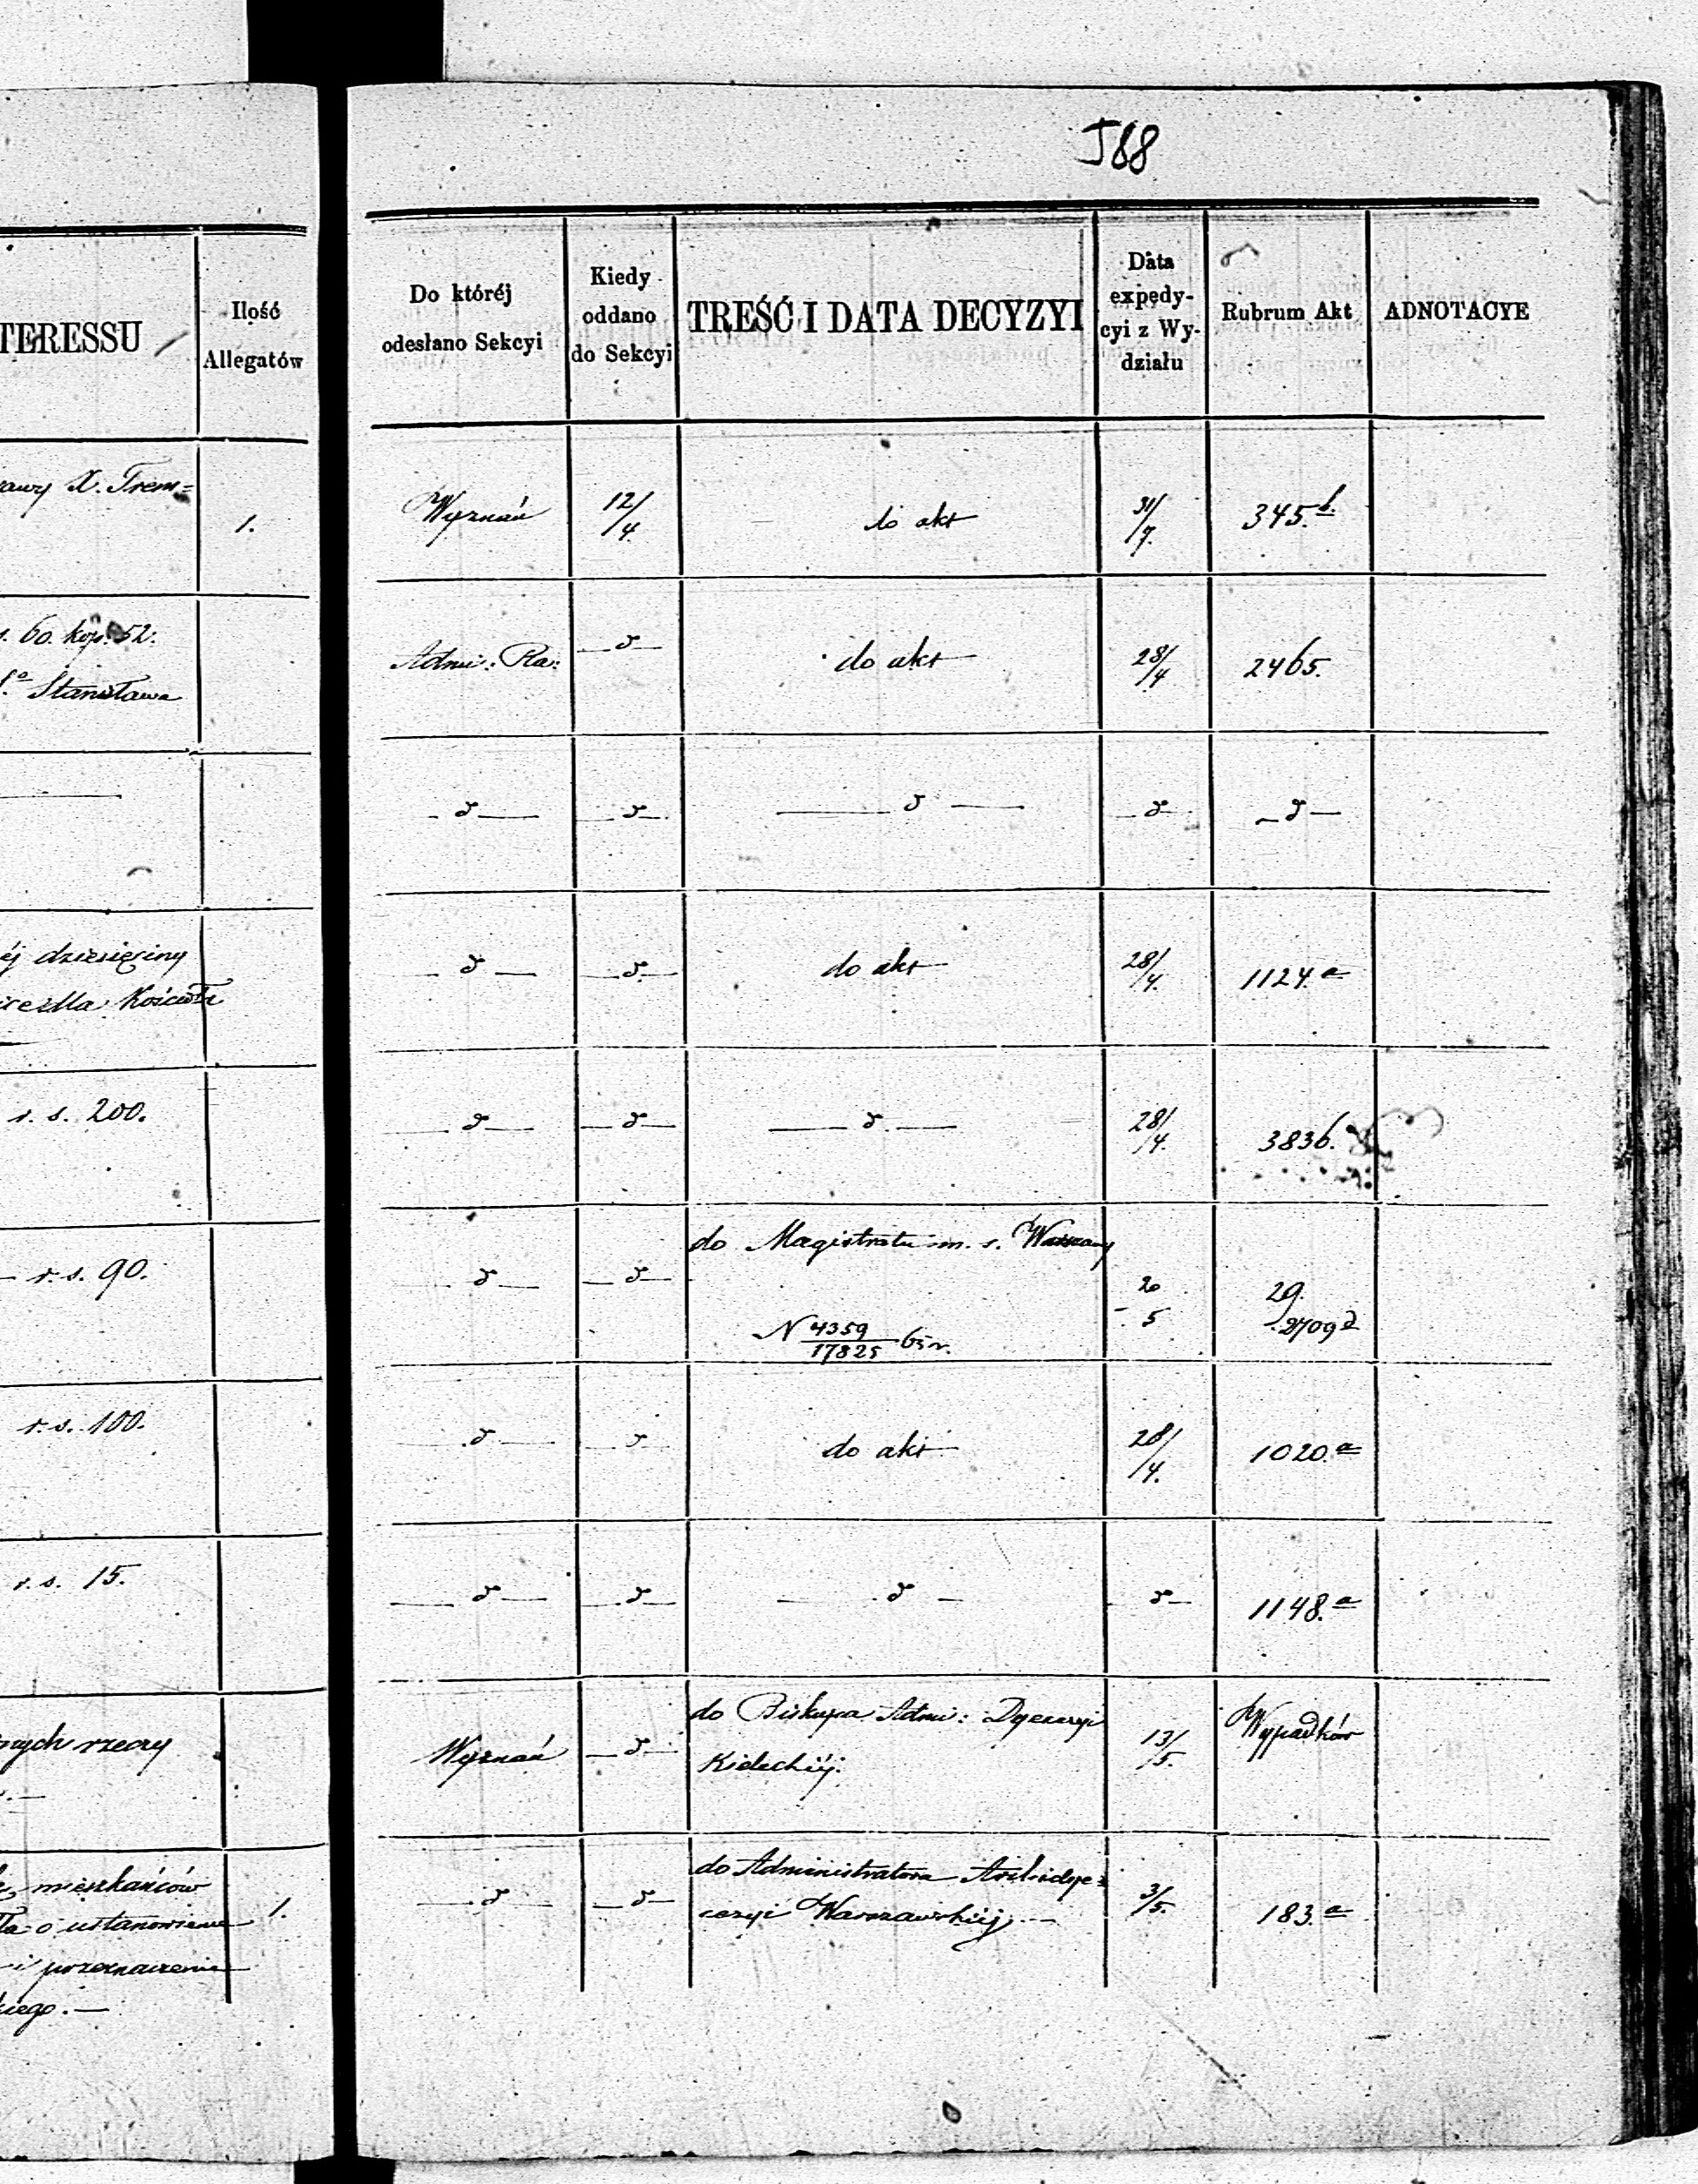 568
TERESSU
Ilość
Allegatów
Do któréj
odesłano Sekcyi
Kiedy
oddano
do Sekcyi
TREŚĆ I DATA DECYZYI
Data
expedy-
cyi z Wy-
działu
Rubrum Akt
ADNOTACYE
X. Trem=
1.
Wyznań
12/4.
do akt
31/7.
345.b.
60. kop. 52.
Stanisława
Admi: Ra:
d
do akt
28/4
2465.
d
d
d
d
d
éj dziesięciny
dla Kościoła
d
d
do akt
28/4.
1124.a
r. s. 200.
d
d
d
28/4.
3836.
r. s. 90.
d
d
do Magistratu m. s. Warszawy
N 4359/17825 65 r.
20
5
29.
2709d
r. s. 100.
d
d
do akt
28/4.
1020.a
r. s. 15.
d
d
d
d
1148.a
nych rzeczy
Wyznań
d
do Biskupa Admi: Dyecezyi
Kieleckiéj.
13/5.
Wypadków
mieszkańców
o ustanowienie
i przeznaczenie
kiego.—
1.
d
d
do Administratora Archidye=
cezyi Warszawskiéj.
3/5.
183.a